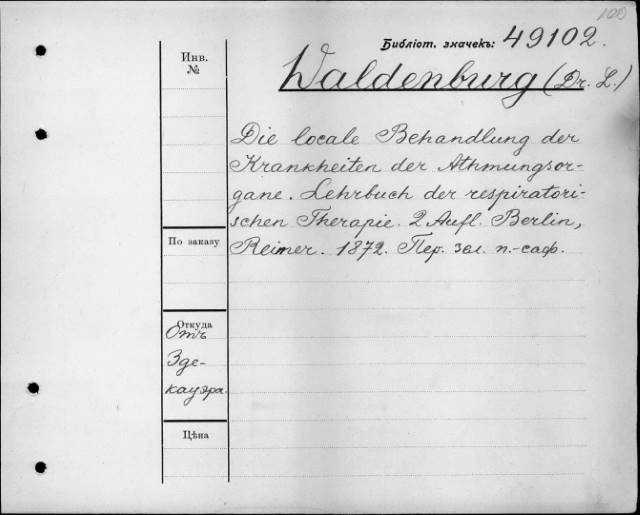 100
Библіот. значекъ: 49102.
Инв.
№
Waldenburg (Dr. L.)
Die locale Behandlung der
Krankheiten der Athmungsor-
gane. Lehrbuch der respiratori-
schen Therapie. 2 Aufl. Berlin,
Reimer. 1872. Пер. зел. п.-саф.
По заказу
Откуда
Отъ
Зде-
кауэра.
Цѣна